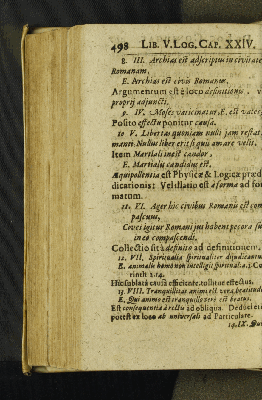 498 LIB. V. LOG. CAP. XXIV.
8. III. Archias est adscriptus in civitate
Romanam,
E. Archias est civis Romanus.
Argumentum est è loco definitionis, v
proprij adjuncti.
9. IV. Moses vaticinatur, E. est vates,
Posito effectu ponitur causa.
10 V. Libertas quoniam nulli jam restat
mante Nullus liber erit si quis amare velit.
Item Martiali inest candor,
E. Martialis candidus est.
Æquipollentia est Physicæ & Logicæ præd
dicationis: Vel illatio est à forma ad for
matum.
11. VI. Ager hic civibus Romanis est com
pascuus,
E. cives igitur Romani jus habent pecora su
in eo compascendi.
Collectio est à definito ad definitionem.
12. VII. Spiritualia spiritualiter dijudicantur
E. animalis homo non intelligit spiritualia. 1. Co
rinth. 2. 14.
Hic sublatâ causâ efficiente, tollitur effectus.
13. VIII. Tranquillitas animi est vera beatitudo
E. Qui animo est tranquillo vere est beatus.
Est consequentia à recto ad obliqua. Deduci e
potest ex loco ab universali ad Particulare.
14. IX.